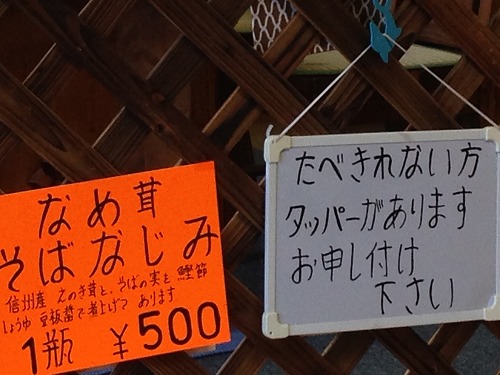 なめ茸
そばなじみ
信州産 えのき茸と、そばの実と 鰹節
しょうゆ 豆板醤で煮上げて あります
1瓶 ¥500
たべきれない方
タッパーがあります
お申し付け
下さい